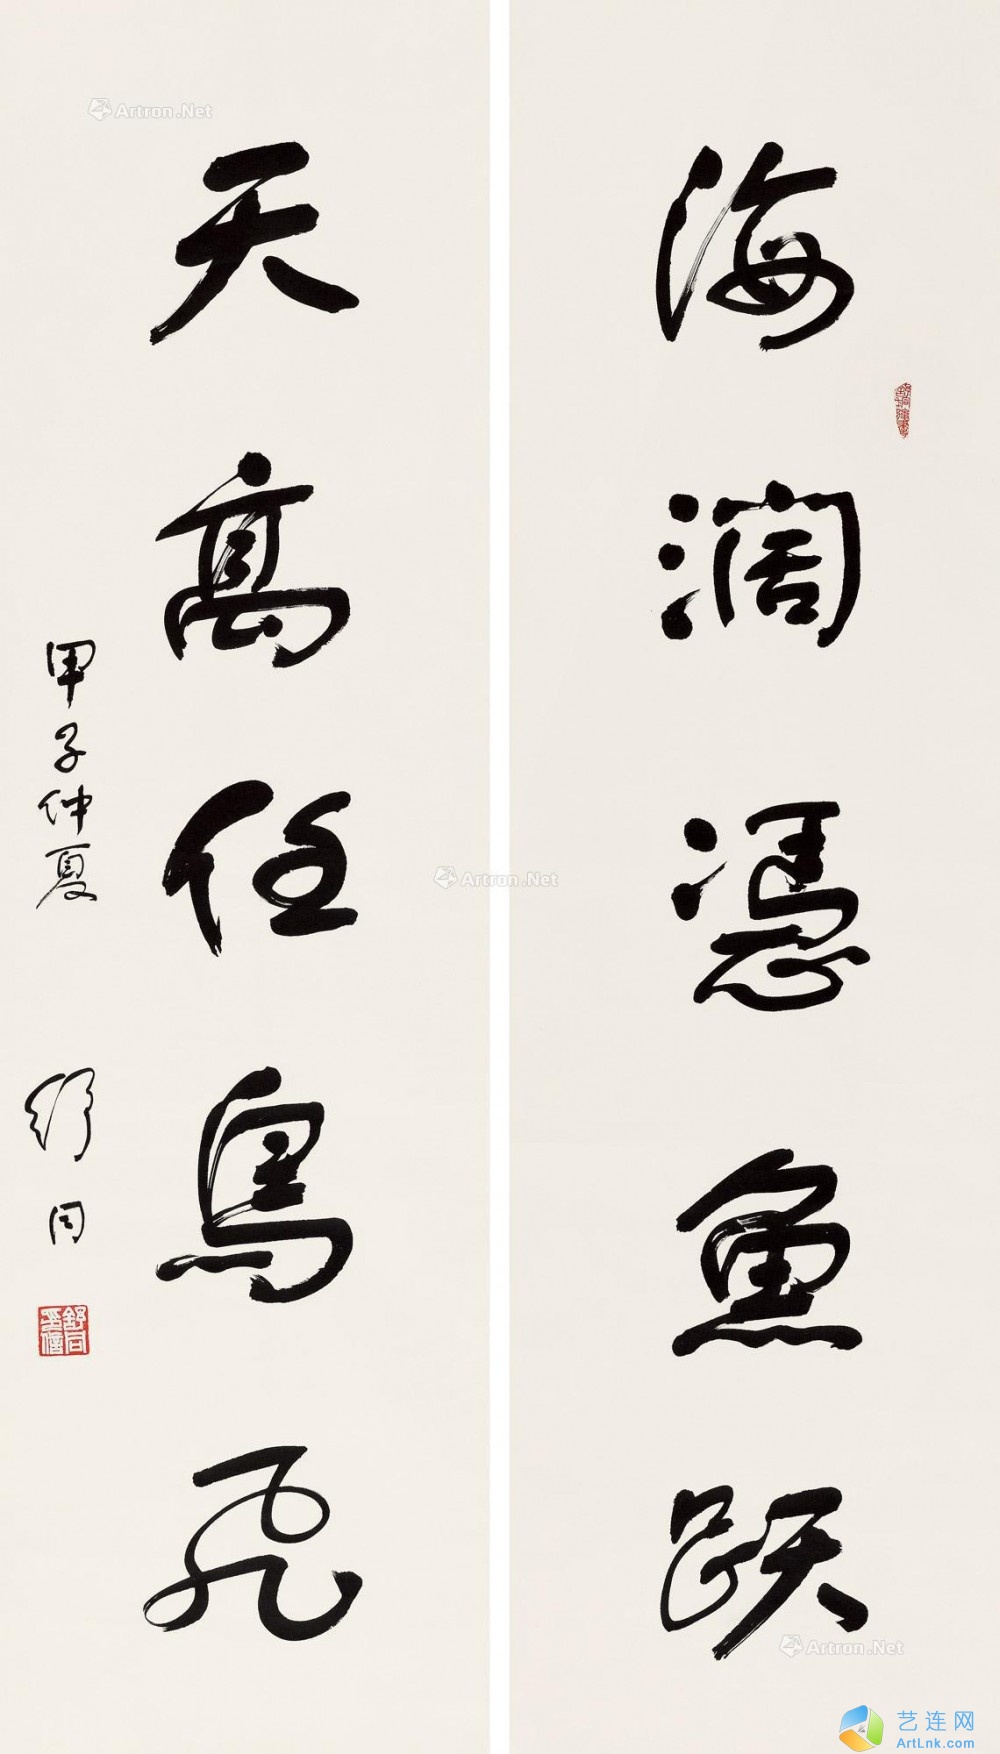 海濶憑魚跃
天高任鳥飛
甲子仲夏
舒同
舒同印信
Artron.Net
Artron.Net
Artron.Net
艺连网
ArtLnk.com